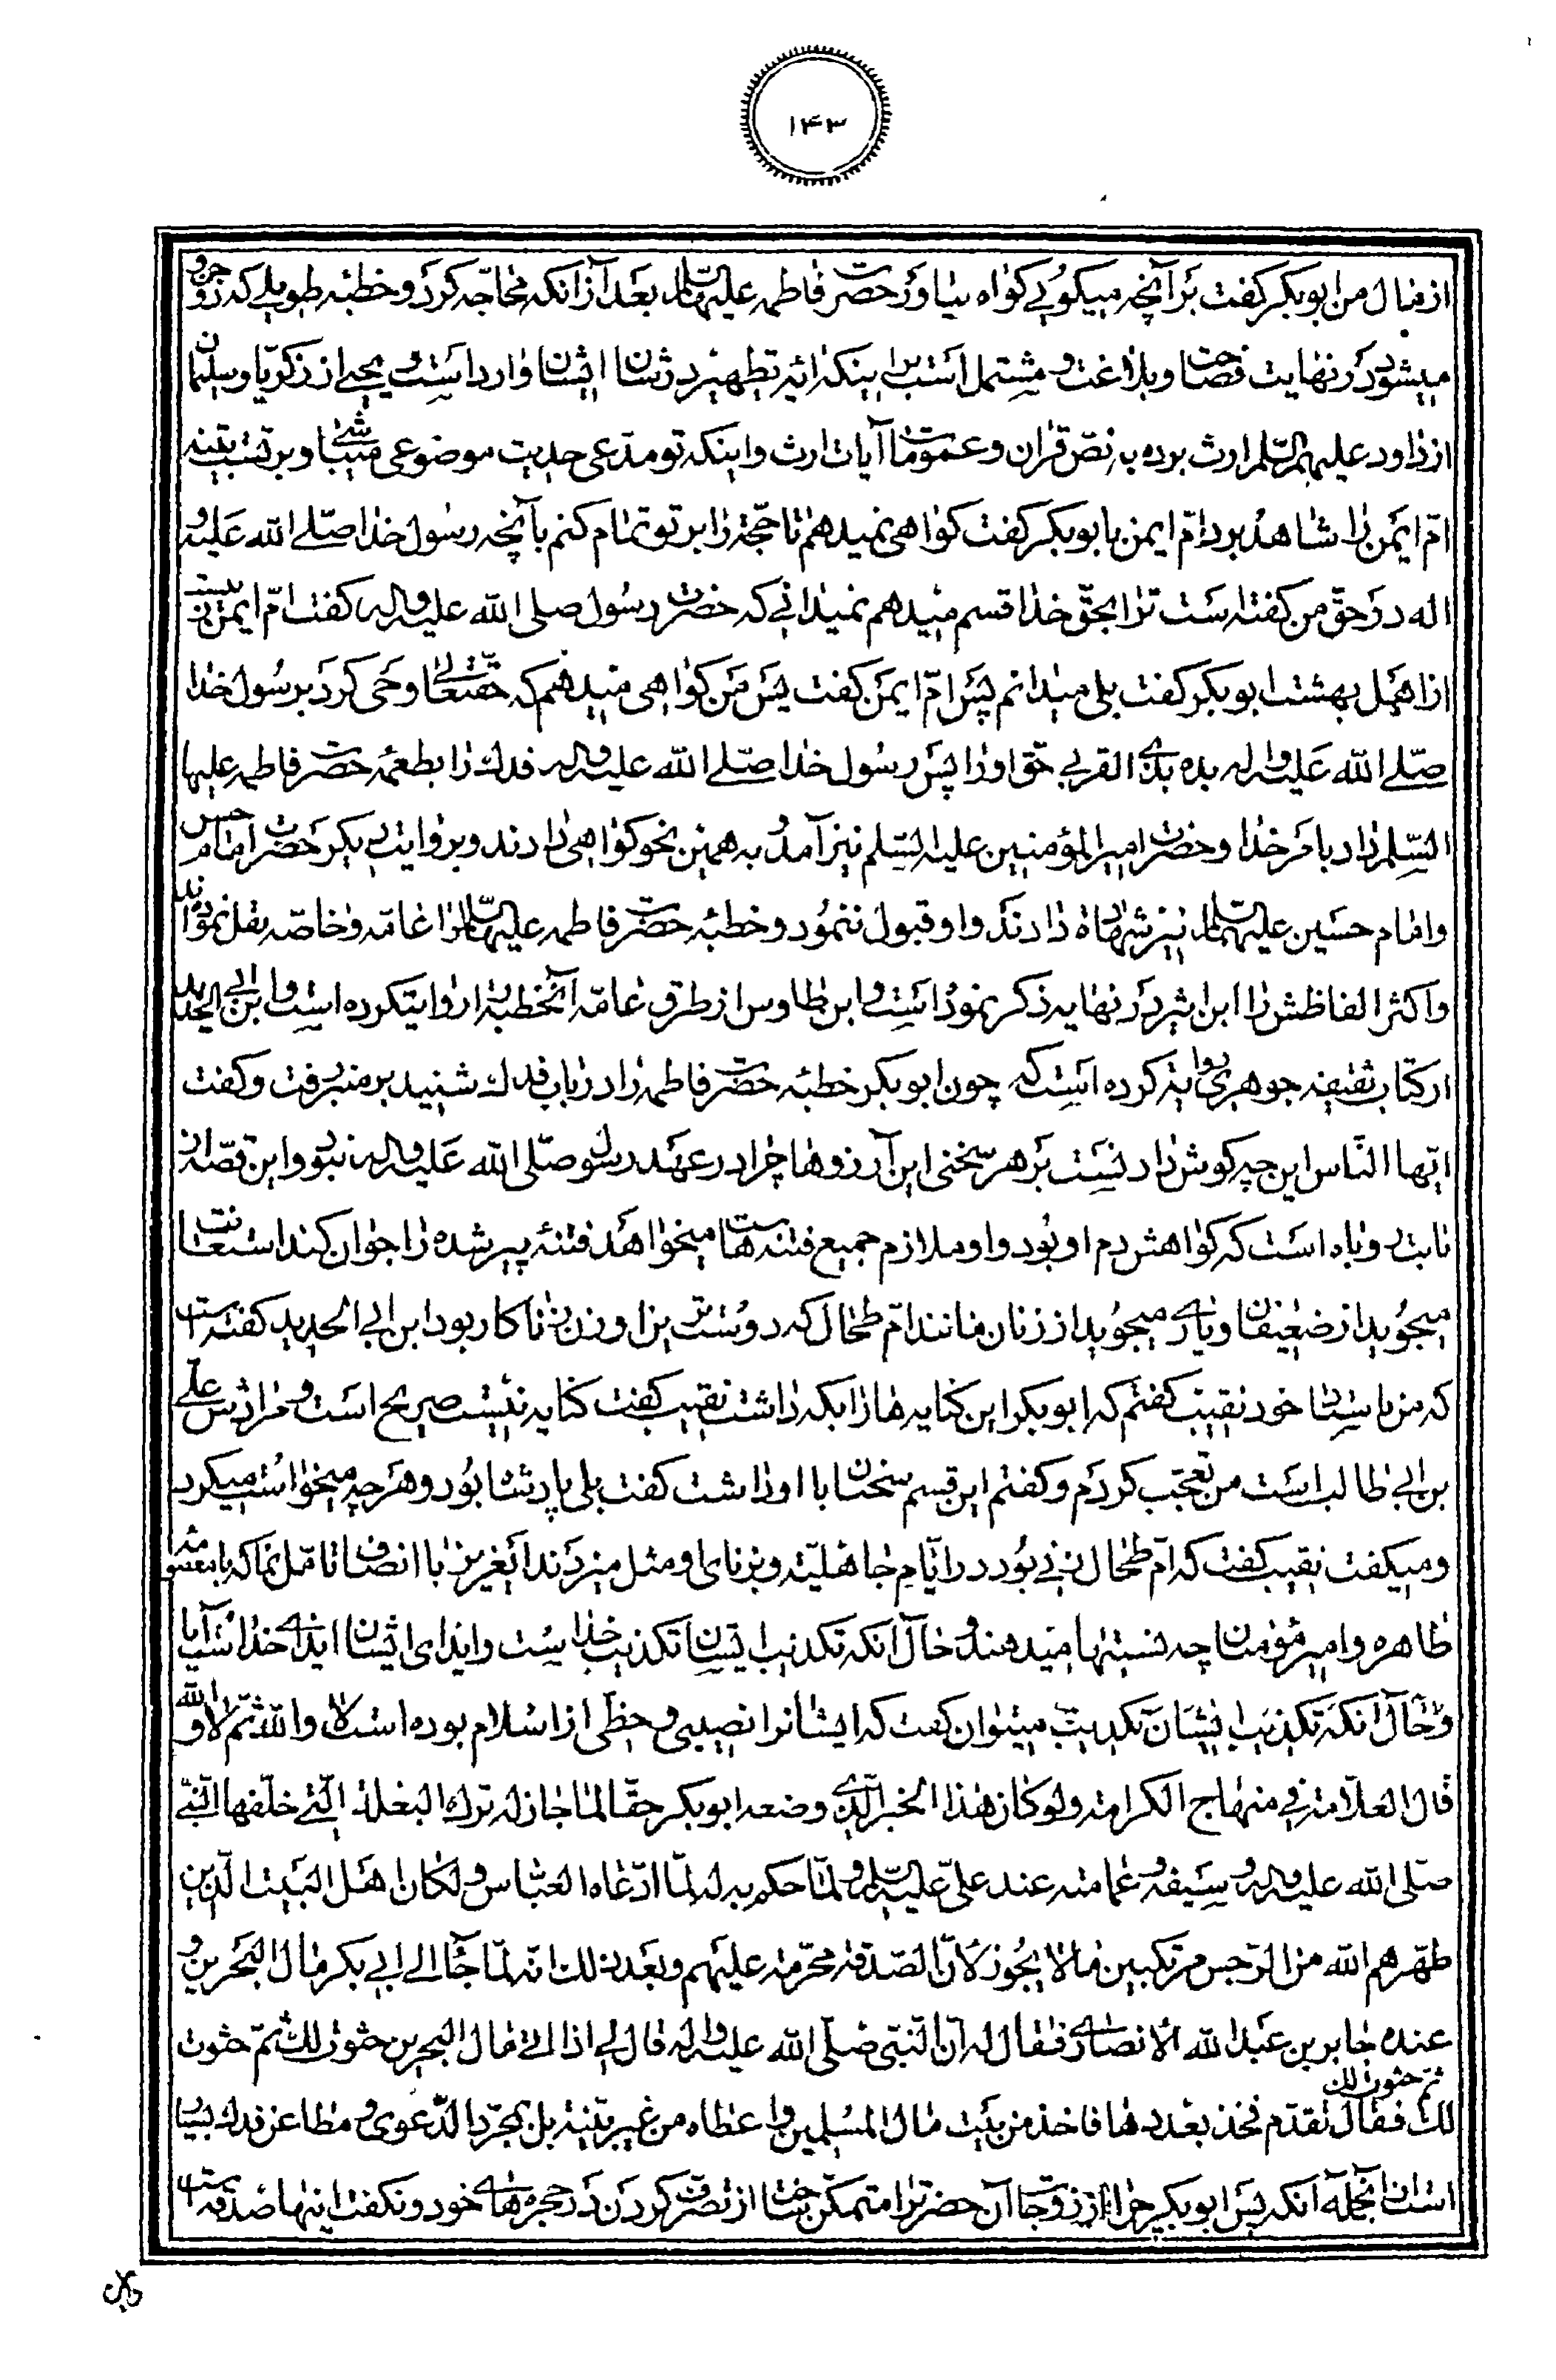 ۱۴۳
از مال من ابوبکر گفت بر آنچه میگویی کواه بیاور حضرت فاطمه علیها السلام بعد از آنکه محاجه کرد و خطبه طویلی که دو جزو
میشود در نهایت فصاحت و بلاغت و مشتمل است بر اینکه ایه تطهیر در شان ایشان وارد است و یحیی از زکریا و سلیمان
از داود علیهم السلم ارث برده به نص قران و عمومات آیات ارث و اینکه تو مدعی حدیث موضوعی میباشی و بر تست بینه
ام ایمن را شاهد برد ام ایمن بابوبکر گفت کواهی نمیدهم تا حجة را بر تو تمام کنم بآنچه رسول خدا صلی الله علیه و
اله در حق من گفته است ترا بحق خدا قسم میدهم نمیدانی که حضرت رسول صلی الله علیه و اله گفت ام ایمن زنیست
از اهل بهشت ابوبکر گفت بلی میدانم پس ام ایمن گفت پس من کواهی میدهم که حقتعالی وحی کرد بر سول خدا
صلی الله علیه و اله بده بذی القربی حق او را پس رسول خدا صلی الله علیه و اله فدک را بطعمه حضرت فاطمه علیها
السلم داد بامر خدا و حضرت امیر المؤمنین علیه السلم نیز آمد و به همین نحو کواهی دادند و بروایت دیگر حضرت امام حسن
و امام حسین علیهما السلام نیز شهادة دادند و او قبول ننمود و خطبه حضرت فاطمه علیها السلام را عامه و خاصه نقل نموده‌اند
و اکثر الفاظش را ابن اثیر در نهایه ذکر نموده است و ابن طاوس از طرق عامه آنخطبه را روایت کرده است و ابن ابی الحدید
از کتاب سقیفه جوهری روایة کرده است که چون ابوبکر خطبه حضرت فاطمه را در باب فدک شنید بر منبر رفت و گفت
ایها الناس این چه کوش دادنیست بر هر سخنی این آرزوها چرا در عهد رسول صلی الله علیه و اله نبود و این قصه از
بابت روباه است که کواهش دم او بود و او ملازم جمیع فتنه هاست میخواهد فتنهٔ پیر شده را جوان کند استعانت
میجوید از ضعیفان و یاری میجوید از زنان مانند ام طحال که دوست‌تر بنزد او زن زناکار بود ابن ابی الحدید گفته است
که من باستاد خود نقیب گفتم که ابوبکر این کنایه ها را بکه داشت نقیب گفت کنایه نیست صریح است و مرادش علی
بن ابی طالب است من تعجب کردم و گفتم این قسم سخنان با او داشت گفت بلی پادشاه بود و هر چه میخواست میکرد
و میگفت نقیب گفت که ام طحال زنی بود در ایام جاهلیة و بزنای او مثل میزدند ایعزیز با انصاف تامل نما که بامعصومه
طاهره و امیر مؤمنان چه نسبتها میدهند و حال آنکه تکذیب ایشان تکذیب خداست و ایذای ایشان ایذای خداست آیا
و حال آنکه تکذیب ایشان تکذیب میتوان گفت که ایشانرا نصیبی و حظی از اسلام بوده است لا والله ثم لا والله
قال العلامة فی منهاج الکرامه و لو کان هذا الخبر الذی وضعه ابوبکر حقا لما جاز له ترک البغلة التی خلفها النبی
صلی الله علیه و اله و سیفه و عمامته عند علی علیه السلم و لما حکم به له لما ادعاه العباس و لکان اهل البیت الذین
طهرهم الله من الرجس مرتکبین ما لا یجوز لان الصدقة محرمة علیهم و بعد ذلک انه لما جاء الی ابی بکر مال البحرین و
عنده جابر بن عبدالله الانصاری فقال له ان النبی صلی الله علیه و اله قال لی اذا اتی مال البحرین حثوت لک ثم حثوت
لک ثم حثوت لک فقال تقدم فخذ بعددها فاخذ من بیت مال المسلمین و اعطاه من غیر بینة بل بمجرد الدعوی و مطاعن فدک بسیار
است از انجمله آنکه پس ابوبکر چرا زوجات آن حضرت را متمکن ساخت از تصرف کردن در حجره های خود و نگفت اینها صدقه است